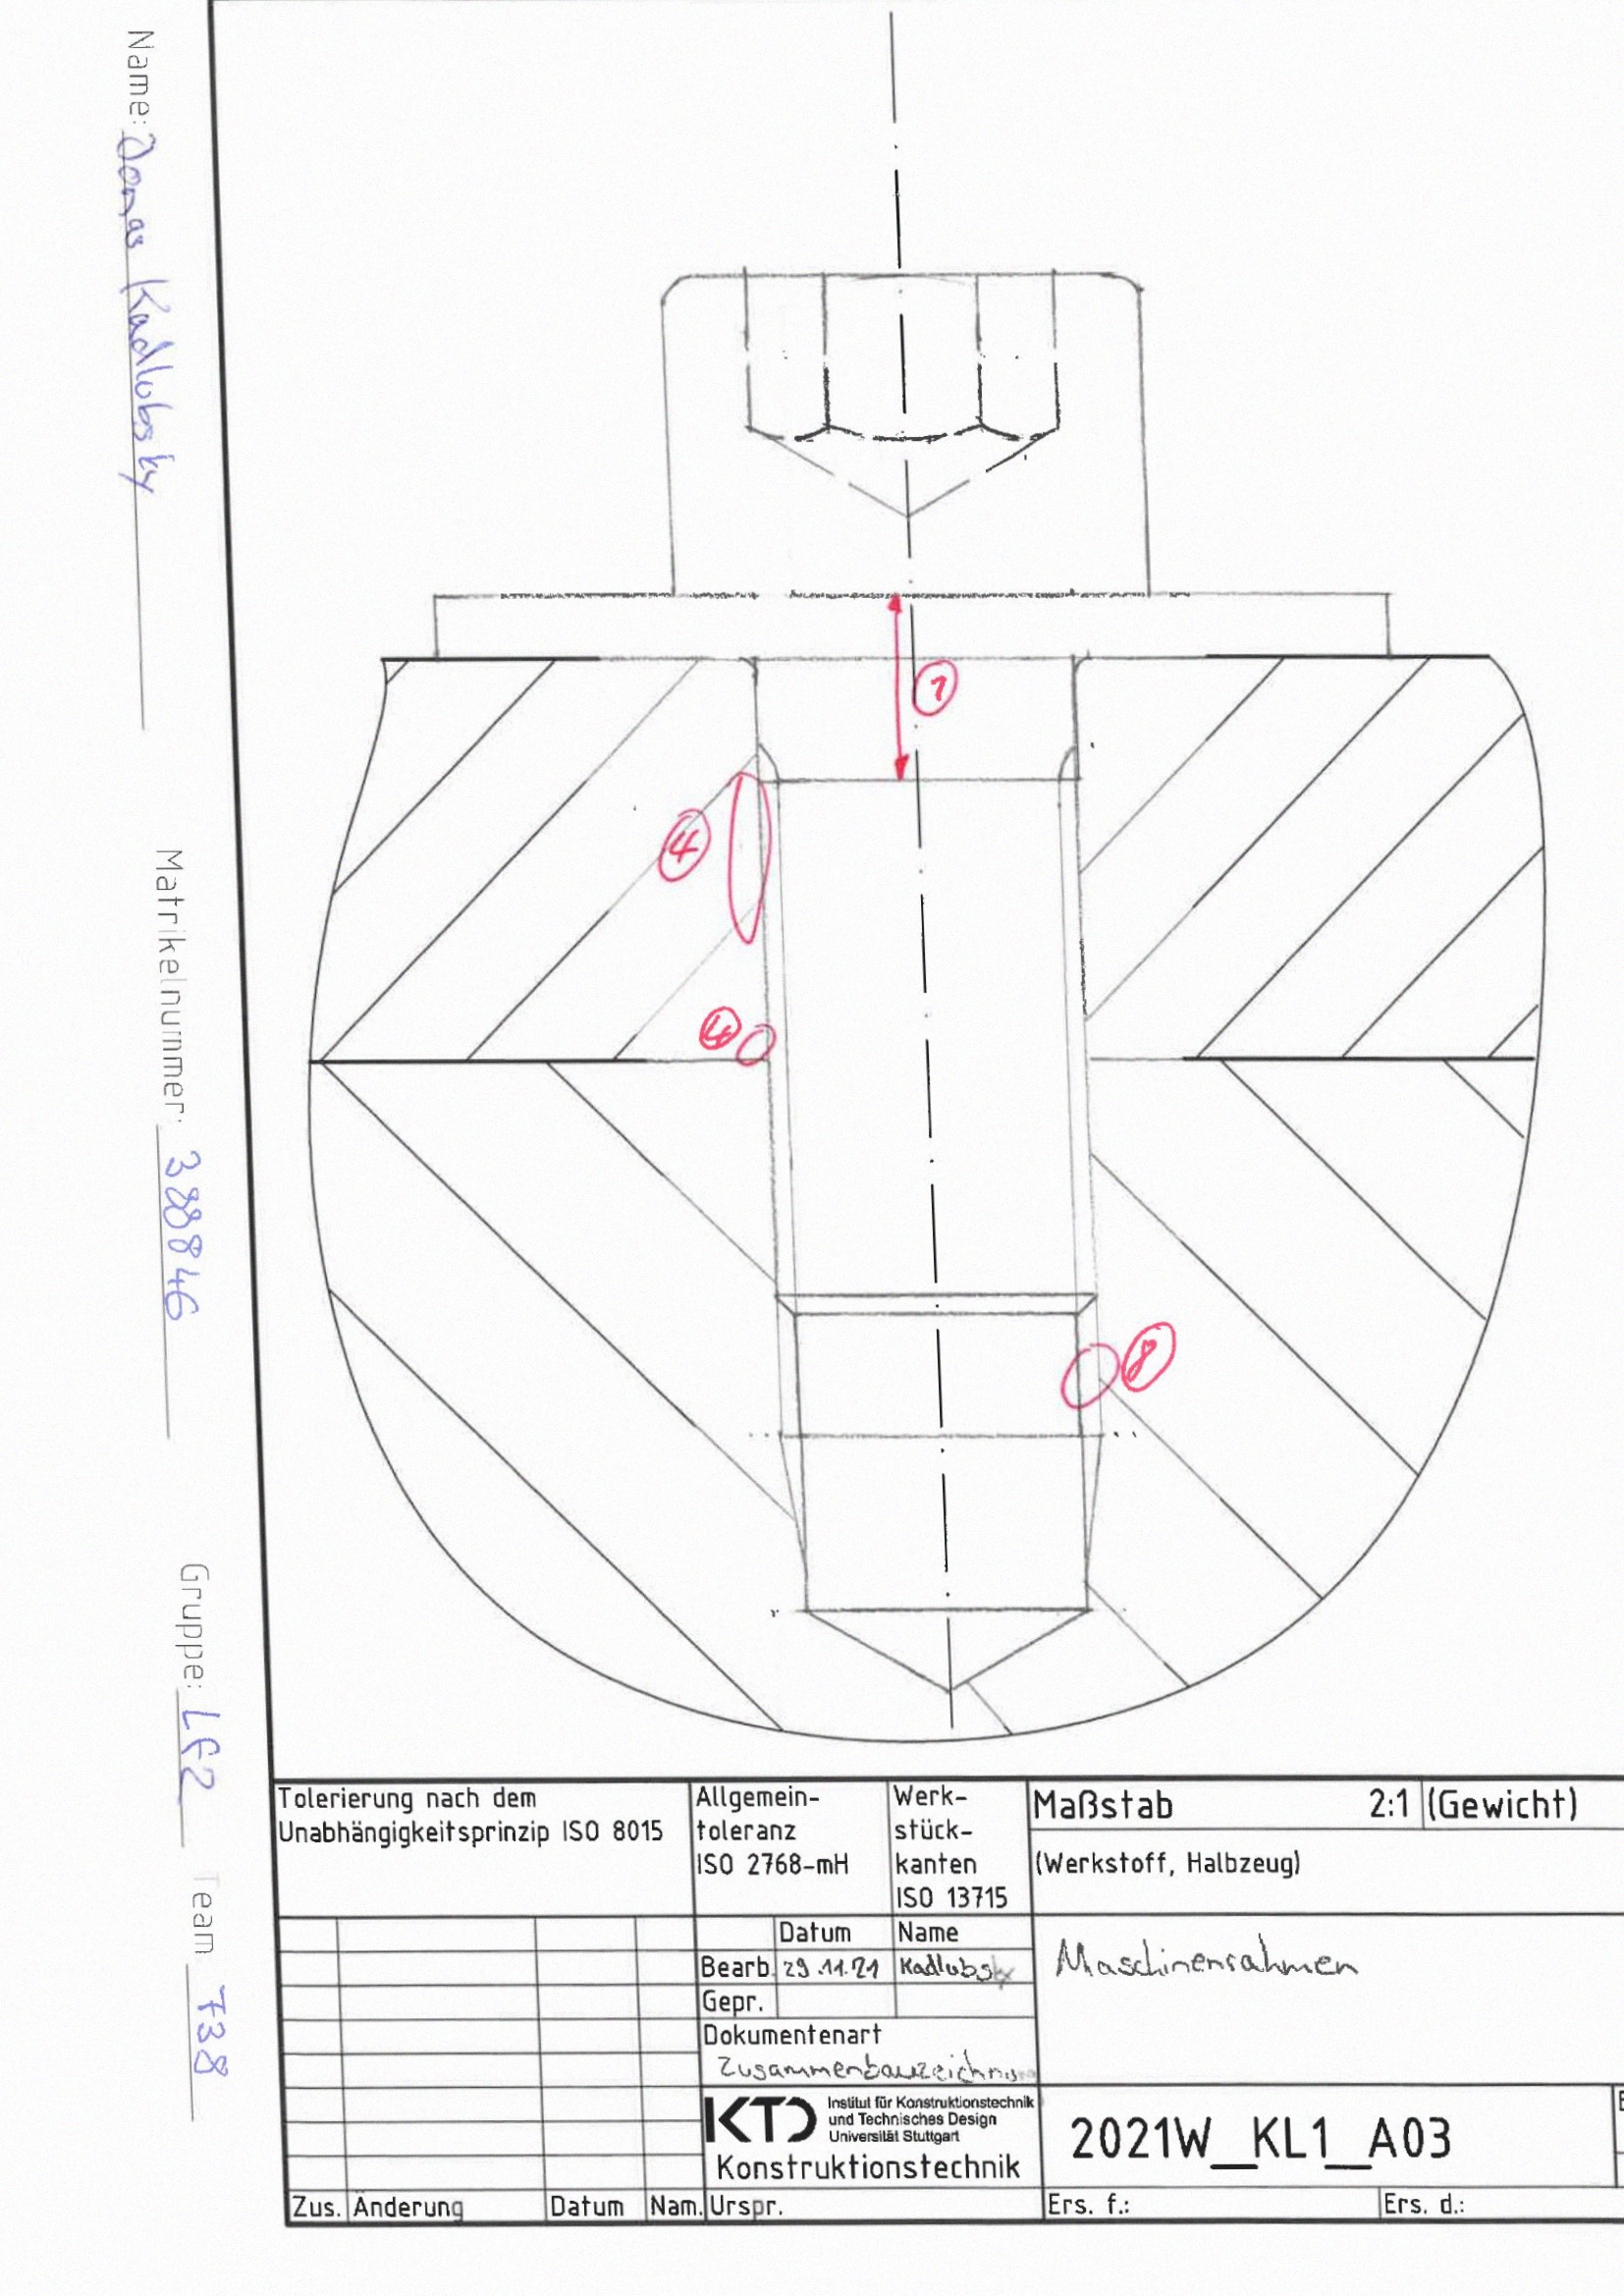 Name: Jonas Kadlubsky
Matrikelnummer: 388846
Gruppe: LF2 Team 738
1
4
4
8
Tolerierung nach dem
Unabhängigkeitsprinzip ISO 8015
Allgemein-
toleranz
ISO 2768-mH
Werk-
stück-
kanten
ISO 13715
Maßstab 2:1 (Gewicht)
(Werkstoff, Halbzeug)
Datum Name
Bearb. 29.11.21 Kadlubsky
Gepr.
Maschinenrahmen
Dokumentenart
Zusammenbauzeichnung
KTD Institut für Konstruktionstechnik
und Technisches Design
Universität Stuttgart
Konstruktionstechnik
2021W_KL1_A03
Zus. Änderung Datum Nam. Urspr. Ers. f.: Ers. d.: